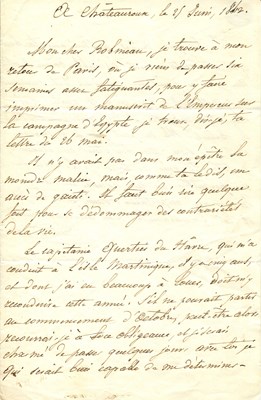 Châteauroux, le 25 Juin, 1842.
Mon cher Robineau, je trouve à mon
retour de Paris, où je viens de passer six
semaines assez fatigantes, pour y faire
imprimer un manuscrit de l'Empereur sur
la campagne d'Egypte je trouve, dis-je, ta
lettre du 26 mai.
Il n'y avait pas dans mon épître la
moindre malice mais, comme tu le dis, un
accès de gaieté. Il faut bien rire quelque
fois pour se dédommager des contrariétés
de la vie.
Le capitaine du Havre, qui m'a
conduit à la Martinique, il y a cinq ans,
et dont j'ai eu beaucoup à me louer, doit m'y
reconduire cette année. S'il ne pouvait partir
au commencement d'Octobre, peut-être alors
à obligeance, et je serais
charmé de passer quelques jours avec toi je
qui serait bien capable de me détermin-